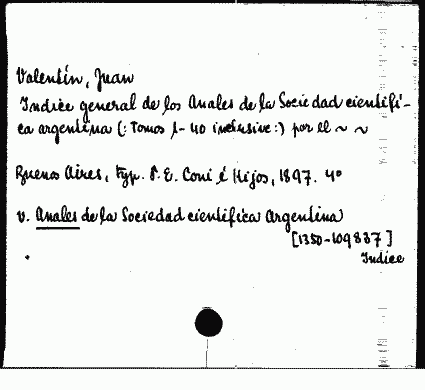 Valentín, Juan
Indice general de los Anales de la Sociedad científi-
ca argentina (: Tomos 1-40 inclusive :) por el ~ ~
Buenos Aires, typ. P. E. Coni é Hijos, 1897. 4º
v. Anales de la Sociedad científica Argentina
[1350-109837]
Indice